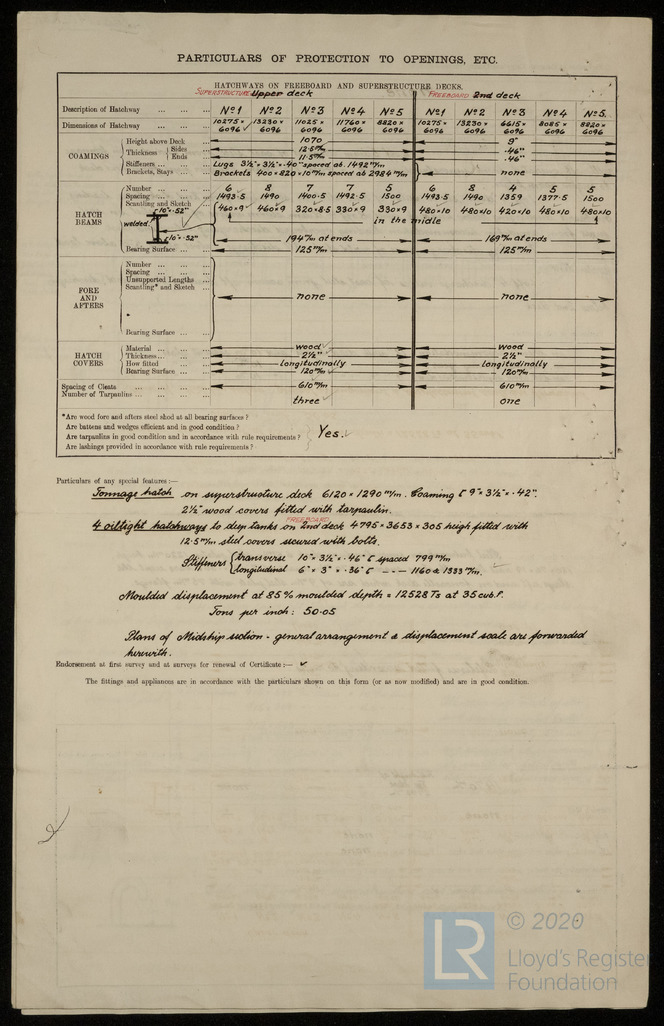 PARTICULARS OF PROTECTION TO OPENINGS, ETC.
HATCHWAYS ON FREEBOARD AND SUPERSTRUCTURE DECKS.
SUPERSTRUCTURE Upper deck FREEBOARD 2nd deck
Description of Hatchway ... ... ... No 1 No 2 No 3 No 4 No 5 No 1 No 2 No 3 No 4 No 5
Dimensions of Hatchway ... ... ... 10275 × 6096 13230 × 6096 11025 × 6096 11760 × 6096 8820 × 6096 10275 × 6096 13230 × 6096 6615 × 6096 8085 × 6096 8820 × 6096
COAMINGS
Height above Deck ... 1070 9"
Thickness Sides ... 12.5 m/m .46"
Ends ... 11.5 m/m .46"
Stiffeners ... ... ... Lugs 3½" × 3½" × .40" spaced ab. 1492 m/m
Brackets, Stays ... ... Brackets 400 × 820 × 10 m/m spaced ab 2984 m/m none
HATCH BEAMS
Number ... ... ... 6 8 7 7 5 6 8 4 5 5
Spacing ... ... ... 1493.5 1490 1400.5 1492.5 1500 1493.5 1490 1359 1377.5 1500
Scantling and Sketch 460×9 460×9 320×8.5 330×9 330×9 480×10 480×10 420×10 480×10 480×10
10" × .52"
in the midle
welded
10" × .52"
194 m/m at ends 169 m/m at ends
Bearing Surface ... ... 125 m/m 125 m/m
FORE AND AFTERS
Number ... ... ...
Spacing ... ... ...
Unsupported Lengths ...
Scantling* and Sketch ... none none
Bearing Surface ... ...
HATCH COVERS
Material ... ... ... wood wood
Thickness ... ... ... 2½" 2½"
How fitted ... ... ... Longitudinally Longitudinally
Bearing Surface ... ... 120 m/m 120 m/m
Spacing of Cleats ... ... ... 610 m/m 610 m/m
Number of Tarpaulins ... ... ... three one
*Are wood fore and afters steel shod at all bearing surfaces ?
Are battens and wedges efficient and in good condition ?
Are tarpaulins in good condition and in accordance with rule requirements ? Yes.
Are lashings provided in accordance with rule requirements ?
Particulars of any special features :—
Tonnage hatch on superstructure deck 6120 × 1290 m/m. Coaming [ 9" × 3½" × .42".
2½" wood covers fitted with tarpaulin.
FREEBOARD
4 oiltight hatchways to deep tanks on 2nd deck 4795 × 3653 × 305 heigh fitted with
12.5 m/m steel covers secured with bolts.
Stiffeners { transverse 10" × 3½" × .46" [ spaced 799 m/m
longitudinal 6" × 3" × .36" [ -- -- 1160 & 1333 m/m.
Moulded displacement at 85% moulded depth = 12528 Ts at 35 cub. f.
Tons per inch: 50.05
Plans of Midship section - general arrangement & displacement scale are forwarded
herewith.
Endorsement at first survey and at surveys for renewal of Certificate :—
The fittings and appliances are in accordance with the particulars shown on this form (or as now modified) and are in good condition.
© 2020
LR
Lloyd's Register
Foundation